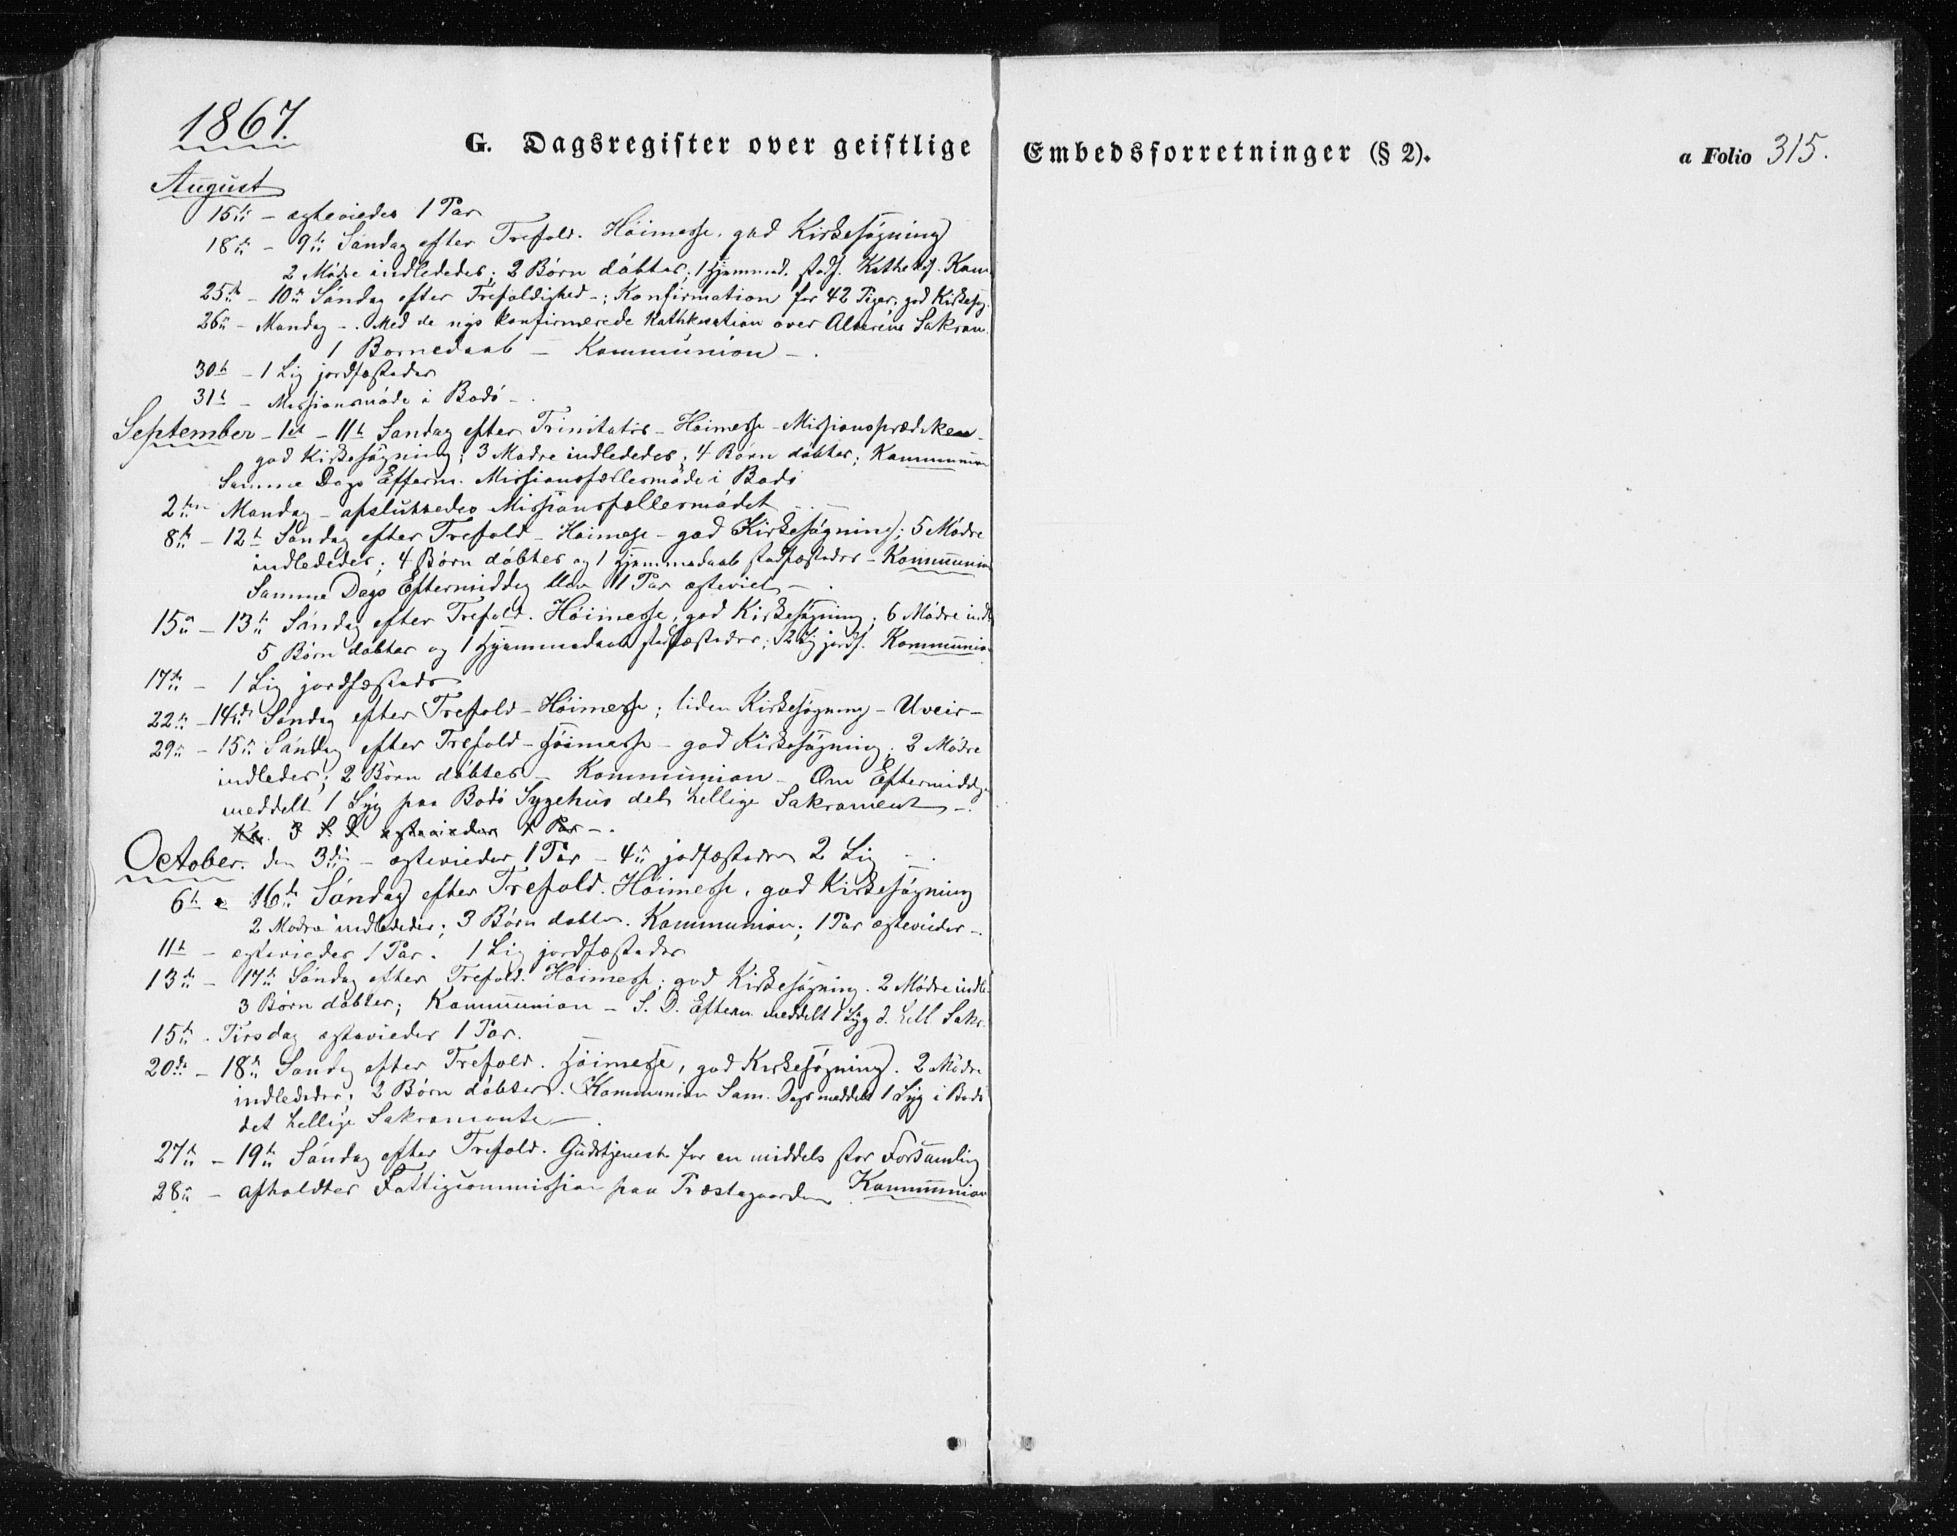 1867.
G. Dagsregister over geistlige Embedsforretninger (§ 2). a Folio 315.
August
15de – ægteviedes 1 Par
18de – 9de Søndag efter Trefold. Høimesse, god Kirkesøgning
2 Mødre indlededes; 2 Børn døbtes; 1 Hjemmed. stadf. Kathekis. Kom.
25de – 10de Søndag efter Trefoldighed –; Konfirmation for 42 Piger, god Kirkesøg.
26de – Mandag – . Med de nys konfirmerede Kathkisation over Alterens Sakram.
1 Barnedaab – Kommunion – .
30te – 1 Lig jordfæstedes
31te – Missionsmøde i Bodø – .
September – 1ste – 11te Søndag efter Trinitatis – Høimesse – Missionsprædiken –
god Kirkesøgning; 3 Mødre indlededes; 4 Børn døbtes; Kommunion
Samme Dags Efterm. Missionsfællermøde i Bodø
2den – Mandag – afsluttedes Missionsfællermødet – . –
8de – 12te Søndag efter Trefold – Høimesse – god Kirkesøgning; 5 Mødre
indlededes; 4 Børn døbtes og 1 Hjemmedaab stadfæstedes – Kommunion
Samme Dags Eftermiddag blev 1 Par ægteviet – .
15de – 13de Søndag efter Trefold. Høimesse, god Kirkesøgning; 6 Mødre indl.
5 Børn døbtes og 1 Hjemmedaab stadfæstedes; 2 Lig jordf. Kommunion
17de – 1 Lig jordfæstedes
22de – 14de Søndag efter Trefold – Høimesse; liden Kirkesøgning – Uveir –
29de – 15de Søndag efter Trefold – Høimesse – god Kirkesøgning. 2 Mødre
indledes; 2 Børn døbtes – Kommunion – Om Eftermiddag.
meddelt 1 Syg paa Bodø Sygehus det hellige Sakrament – .
ægteviedes 1 Par – .
October. den 3die – ægteviedes 1 Par – 4de jordfæstedes 2 Lig – .
6te – 16de Søndag efter Trefold. Høimesse, god Kirkesøgning
2 Mødre indlededes; 3 Børn døbtes. Kommunion; 1 Par ægteviedes – .
11te – ægteviedes 1 Par. 1 Lig jordfæstedes
13de – 17de Søndag efter Trefold. Høimesse; god Kirkesøgning. 2 Mødre indle.
3 Børn døbtes; Kommunion – S. D. Efterm. meddelt 1 Syg d. hell. Sakr.
15de . Tirsdag ægteviedes 1 Par.
20de – 18de Søndag efter Trefold. Høimesse, god Kirkesøgning. 2 Mødre
indlededes; 2 Børn døbtes. Kommunion Sam. Dags meddelt 1 Syg i Bodø
det hellige Sakramente – .
27de – 19de Søndag efter Trefold. Gudstjeneste for en middels stor Forsamling
28de – afholdtes Fattigcommission paa Præstegaarden Kommunion